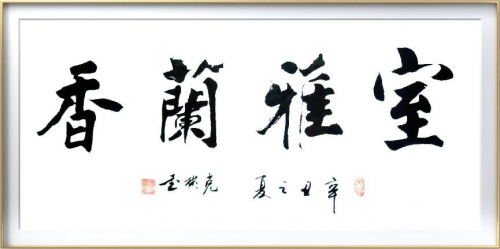 室雅蘭香
辛丑之夏 克